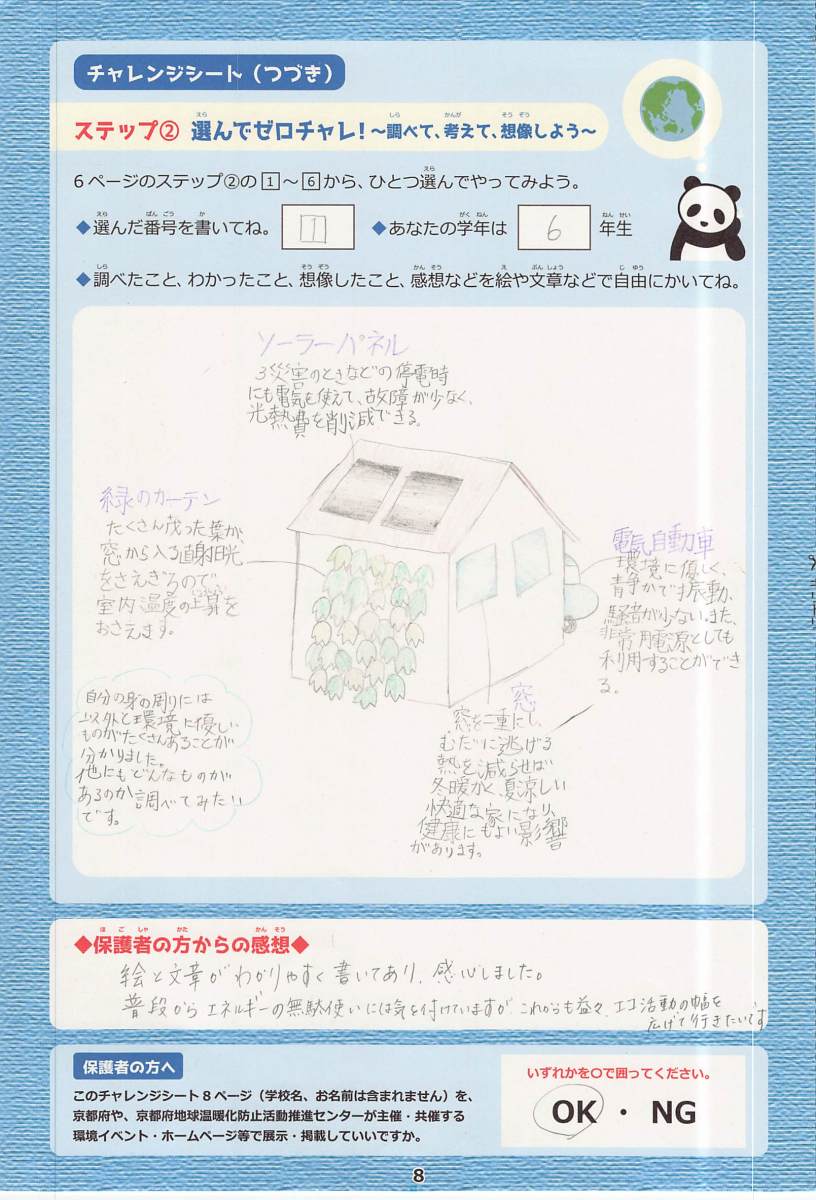 チャレンジシート（つづき）
ステップ② 選んでゼロチャレ！～調べて、考えて、想像しよう～
6ページのステップ②の1～6から、ひとつ選んでやってみよう。
◆選んだ番号を書いてね。 1 ◆あなたの学年は 6 年生
◆調べたこと、わかったこと、想像したこと、感想などを絵や文章などで自由にかいてね。
ソーラーパネル
災害のときなどの停電時
にも電気を使えて、故障が少なく、
光熱費を削減できる。
緑のカーテン
たくさん茂った葉が、
窓から入る直射日光
をさえぎるので、
室内温度の上昇を
おさえます。
電気自動車
環境に優しく、
静かです。振動、
騒音が少ない。また、
非常用電源としても
利用することができ
る。
窓
窓を二重にし、
むだに逃げる
熱を減らせば
冬暖かく、夏涼しい
快適な家になり、
健康にもよい影響
があります。
自分の身の周りには
以外と環境に優しい
ものがたくさんあることが
分かりました。
他にもどんなものが
あるのか調べてみたい
です。
◆保護者の方からの感想◆
絵と文章がわかりやすく書いてあり、感心しました。
普段からエネルギーの無駄使いには気を付けていますが、これからも益々、エコ活動の幅を
広げて行きたいです
保護者の方へ
このチャレンジシート8ページ（学校名、お名前は含まれません）を、
京都府や、京都府地球温暖化防止活動推進センターが主催・共催する
環境イベント・ホームページ等で展示・掲載していいですか。
いずれかを○で囲ってください。
OK ・ NG
8